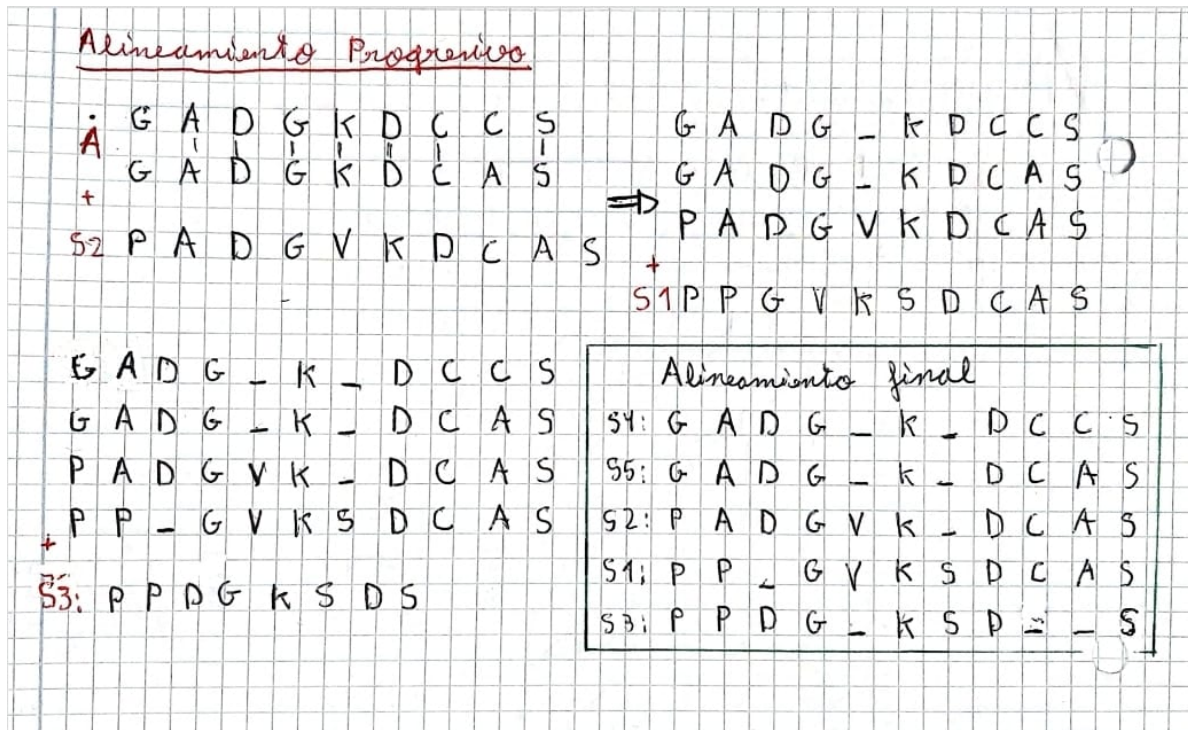 Alineamiento Progresivo
A
G A D G K D C C S
G A D G K D C A S
+
S2 P A D G V K D C A S
⇒
G A D G _ K D C C S
G A D G _ K D C A S
P A D G V K D C A S
+
S1 P P G V K S D C A S
G A D G _ K _ D C C S
G A D G _ K _ D C A S
P A D G V K _ D C A S
P P _ G V K S D C A S
+
S3: P P D G K S D S
Alineamiento final
S4: G A D G _ K _ D C C S
S5: G A D G _ K _ D C A S
S2: P A D G V K _ D C A S
S1: P P _ G V K S D C A S
S3: P P D G _ K S D _ _ S